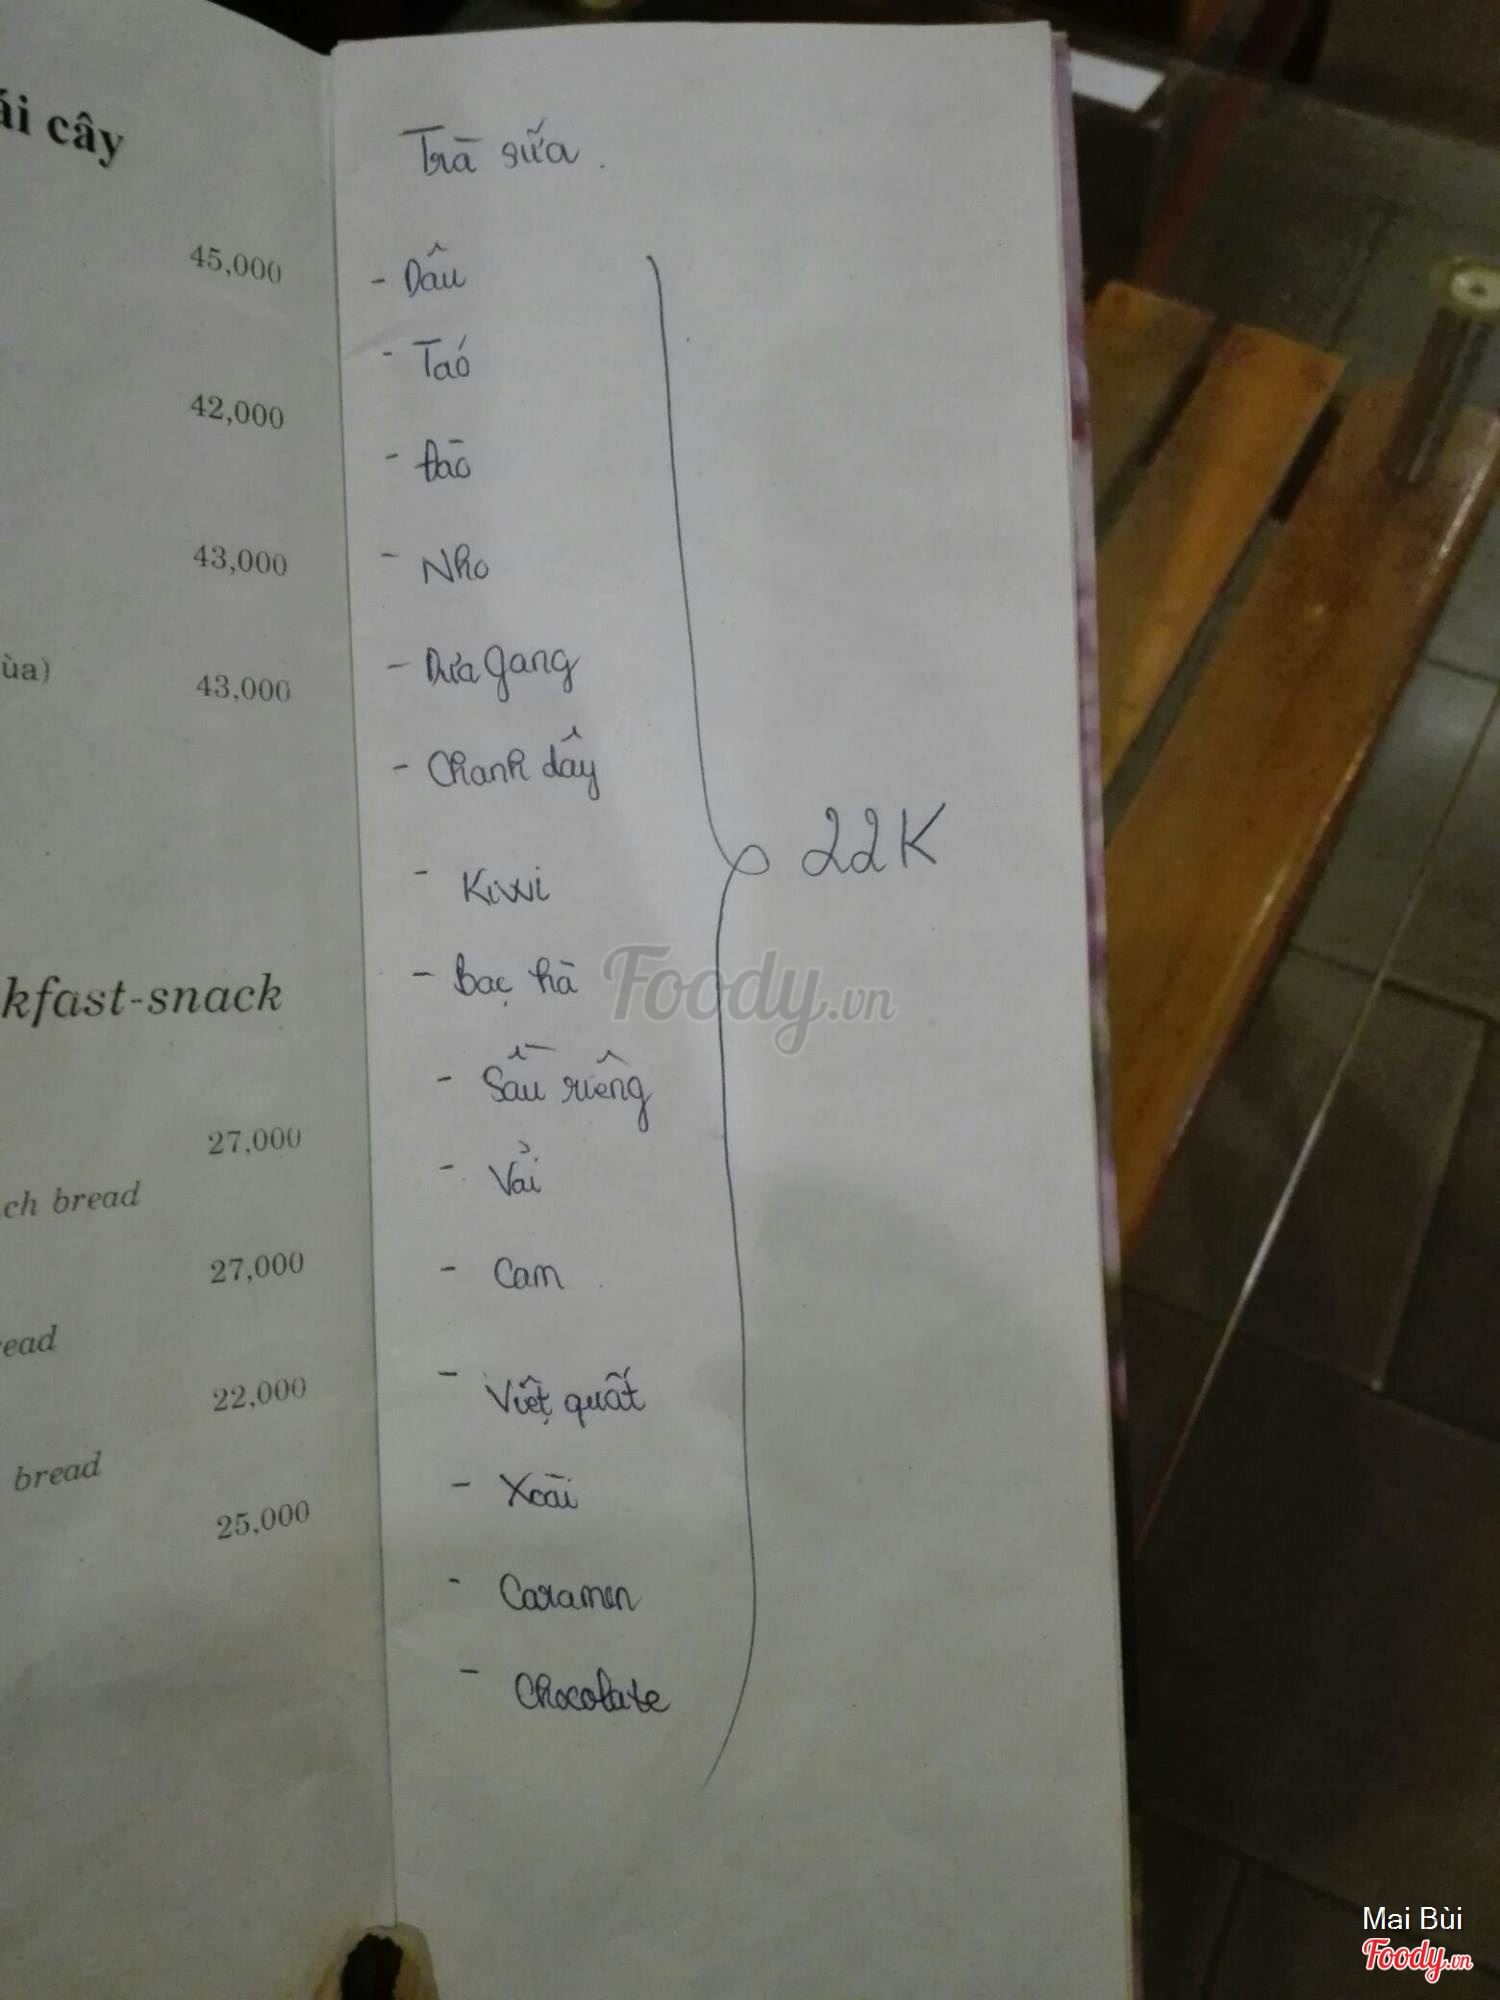 ái cây
45,000
42,000
43,000
ùa)
43,000
kfast-snack
27,000
ch bread
27,000
ead
22,000
bread
25,000
Trà sữa.
- Dâu
- Táo
- Đào
- Nho
- Dưa gang
- Chanh dây
- Kiwi
- Bạc hà
- Sầu riêng
- Vải
- Cam
- Việt quất
- Xoài
- Caramen
- Chocolate
22K
Foody.vn
Mai Bùi
Foody.vn